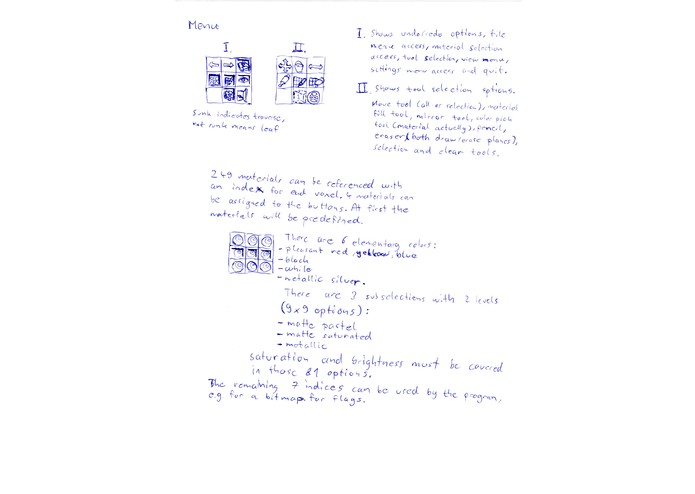 Menu
I.
II.
Sunk indicates traverse,
not sunk means leaf
I. Shows undo/redo options, file
menu access, material selection
access, tool selection, view menu,
settings menu access and quit.
II. Shows tool selection options.
Move tool (all or selection), material
fill tool, mirror tool, color pick
tool (material actually), pencil,
eraser (both draw/erase planes),
selection and clear tools.
249 materials can be referenced with
an index for each voxel. 4 materials can
be assigned to the buttons. At first the
materials will be predefined.
There are 6 elementary colors:
- pleasant red, yellow, blue
- black
- white
- metallic silver.
There are 3 subselections with 2 levels
(9x9 options):
- matte pastel
- matte saturated
- metallic
saturation and brightness must be covered
in those 81 options.
The remaining 7 indices can be used by the program,
e.g for a bitmap for flags.